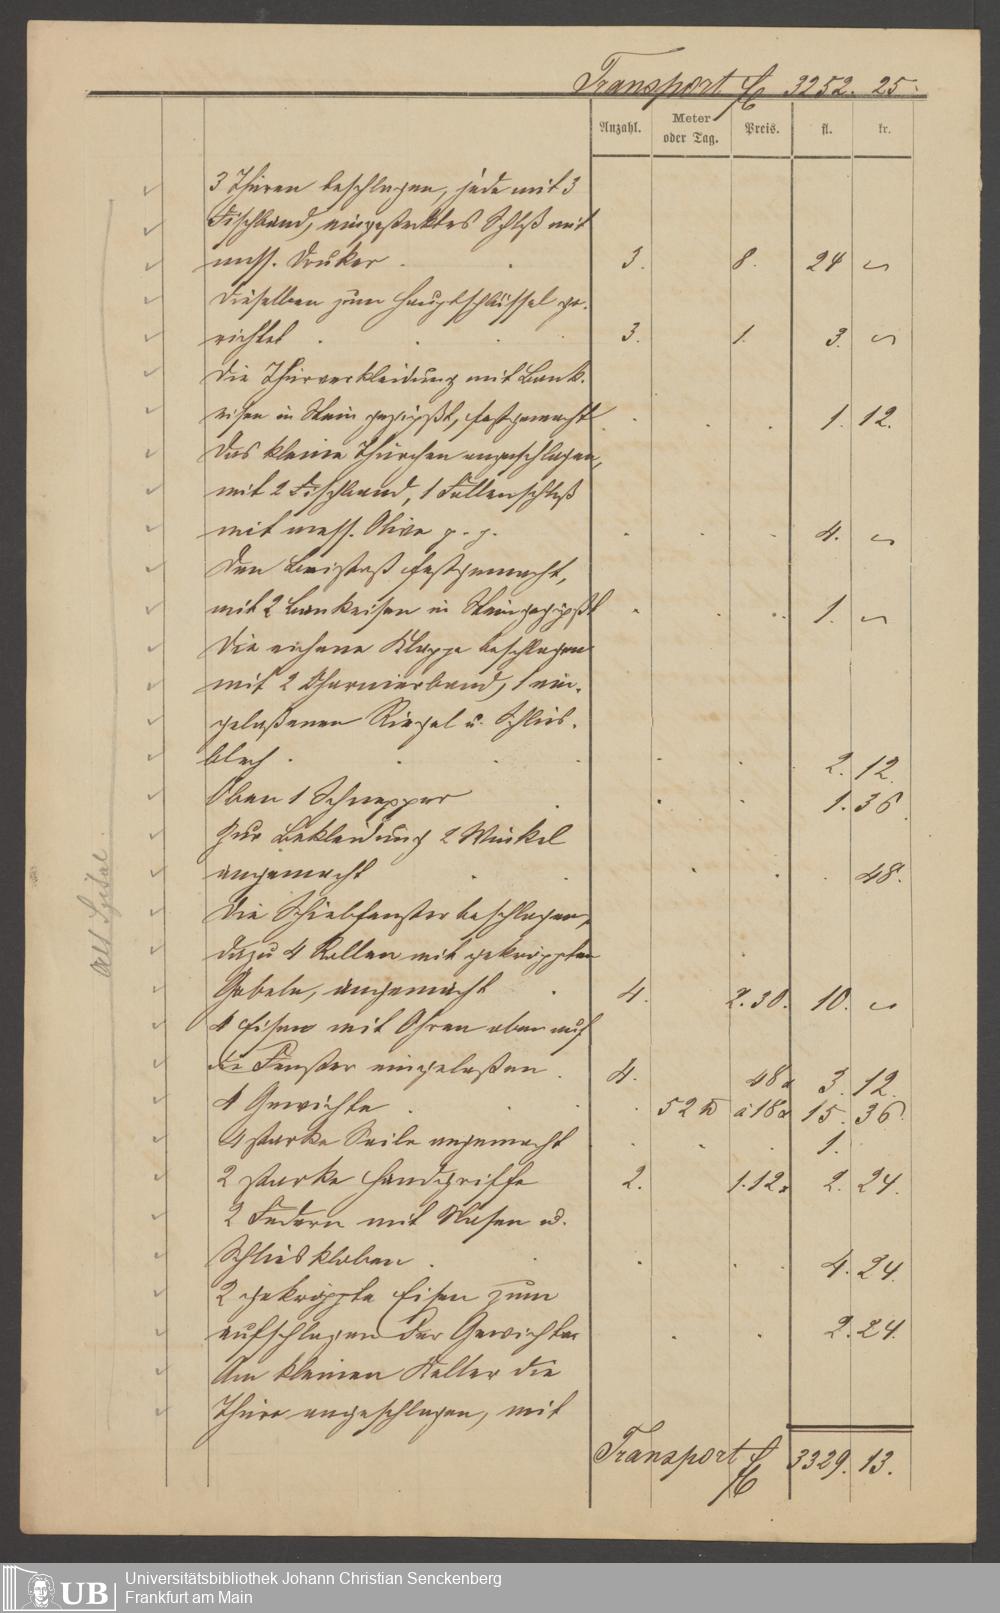 Transport fl 3252. 25.
Anzahl. Meter oder Tag. Preis. fl. kr.
3 Thüren beschlagen, jede mit 3
Fischband, eingestecktes Schloß mit
mess. Drüker . . 3. 8. 24 ~
Dieselben zum Hauptschlüssel ge-
richtet . . . . 3. 1. 3. ~
Die Thürverkleidung mit Bank-
eisen in Stein gegipßt, festgemacht . . . 1. 12.
Das kleine Thürchen angeschlagen,
mit 2 Fischband, 1 Fallenschloß
mit mess. Olive p. p. . . . 4. ~
Den festgemacht,
mit 2 Bankeisen in Stein gegipßt . . . 1. ~
Die eichene Klappe beschlagen
mit 2 Charnierband, 1 ein-
gelaßenen Riegel u. Schlies-
blech . . . . . . . 2. 12.
Oben 1 Schnepper . . . 1. 36.
Zur Bekleidung 2 Winkel
angemacht . . . . . 48.
Die Schiebfenster beschlagen,
dazu 4 Rollen mit gekröppten
Gabeln, angemacht . 4. 2. 30. 10. ~
4 Eisen mit Ohren oben auf
die Fenster eingelaßen . 4. 48 x 3. 12.
4 Gewichte . . . . 52 ℔ à 18 x 15. 36.
4 starke Seile angemacht . . . 1.
2 starke Handgriffe 2. 1.12 x 2. 24.
2 Federn mit Nasen u.
Schlieskloben . . . . . 4. 24.
2 gekröppte Eisen zum
aufschlagen der Gewichte . . 2. 24.
Am kleinen Keller die
Thüre angeschlagen, mit
Transport fl 3329. 13.
UB Universitätsbibliothek Johann Christian Senckenberg
Frankfurt am Main